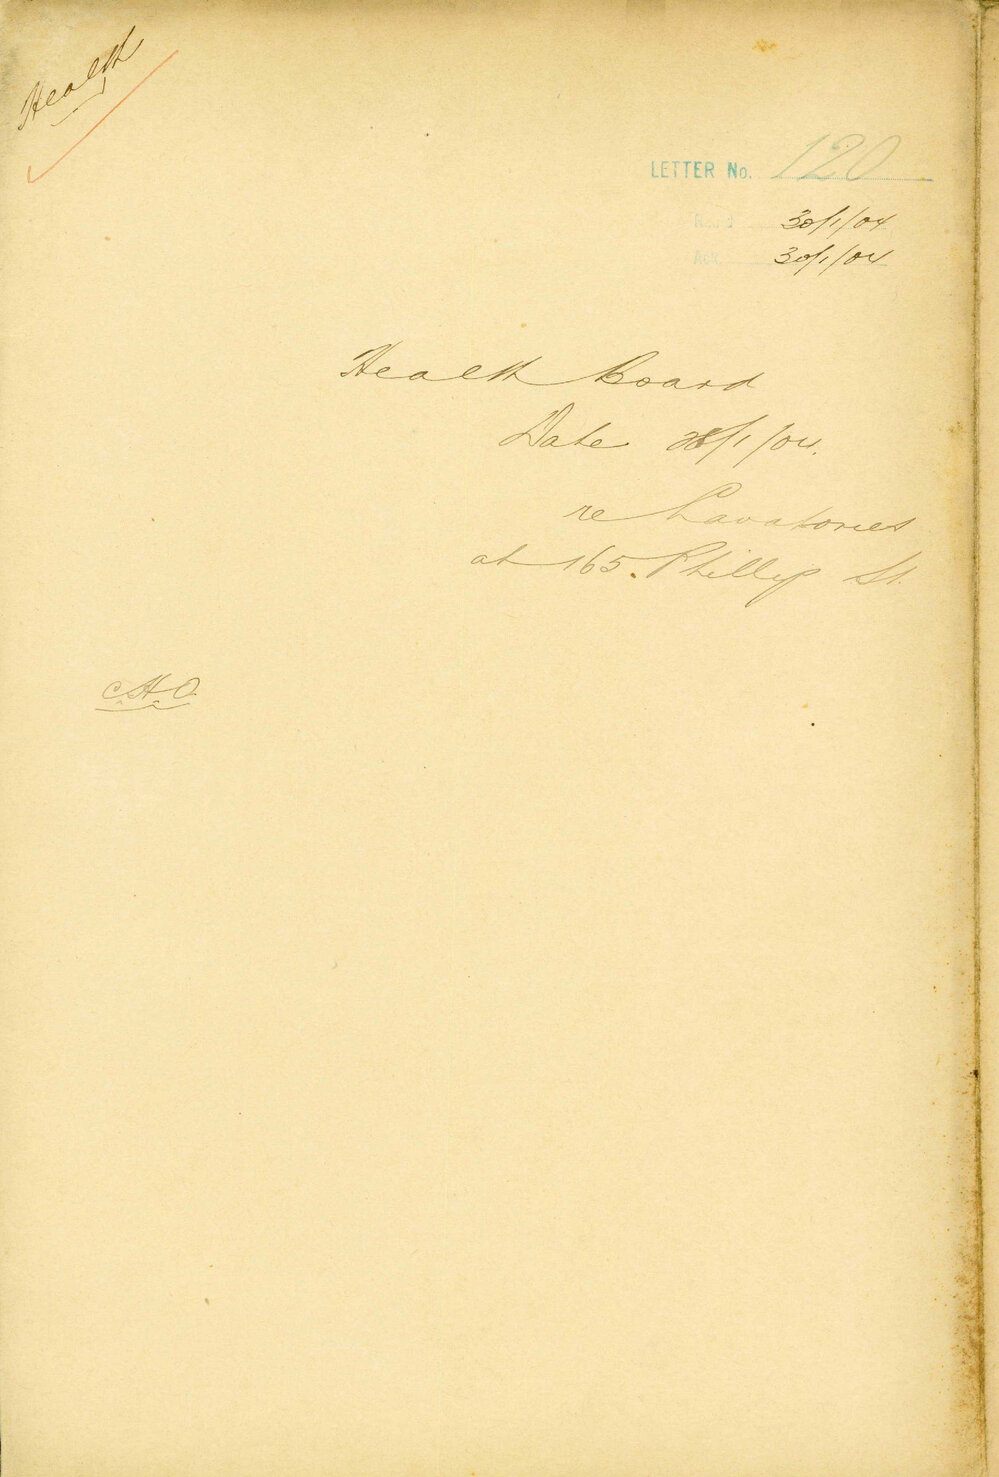 Health
LETTER No. 120
Recd 30/1/04
Ack 30/1/04
Health Board
Date 28/1/04.
re Lavatories
at 165. Phillip St.
C.H.O.